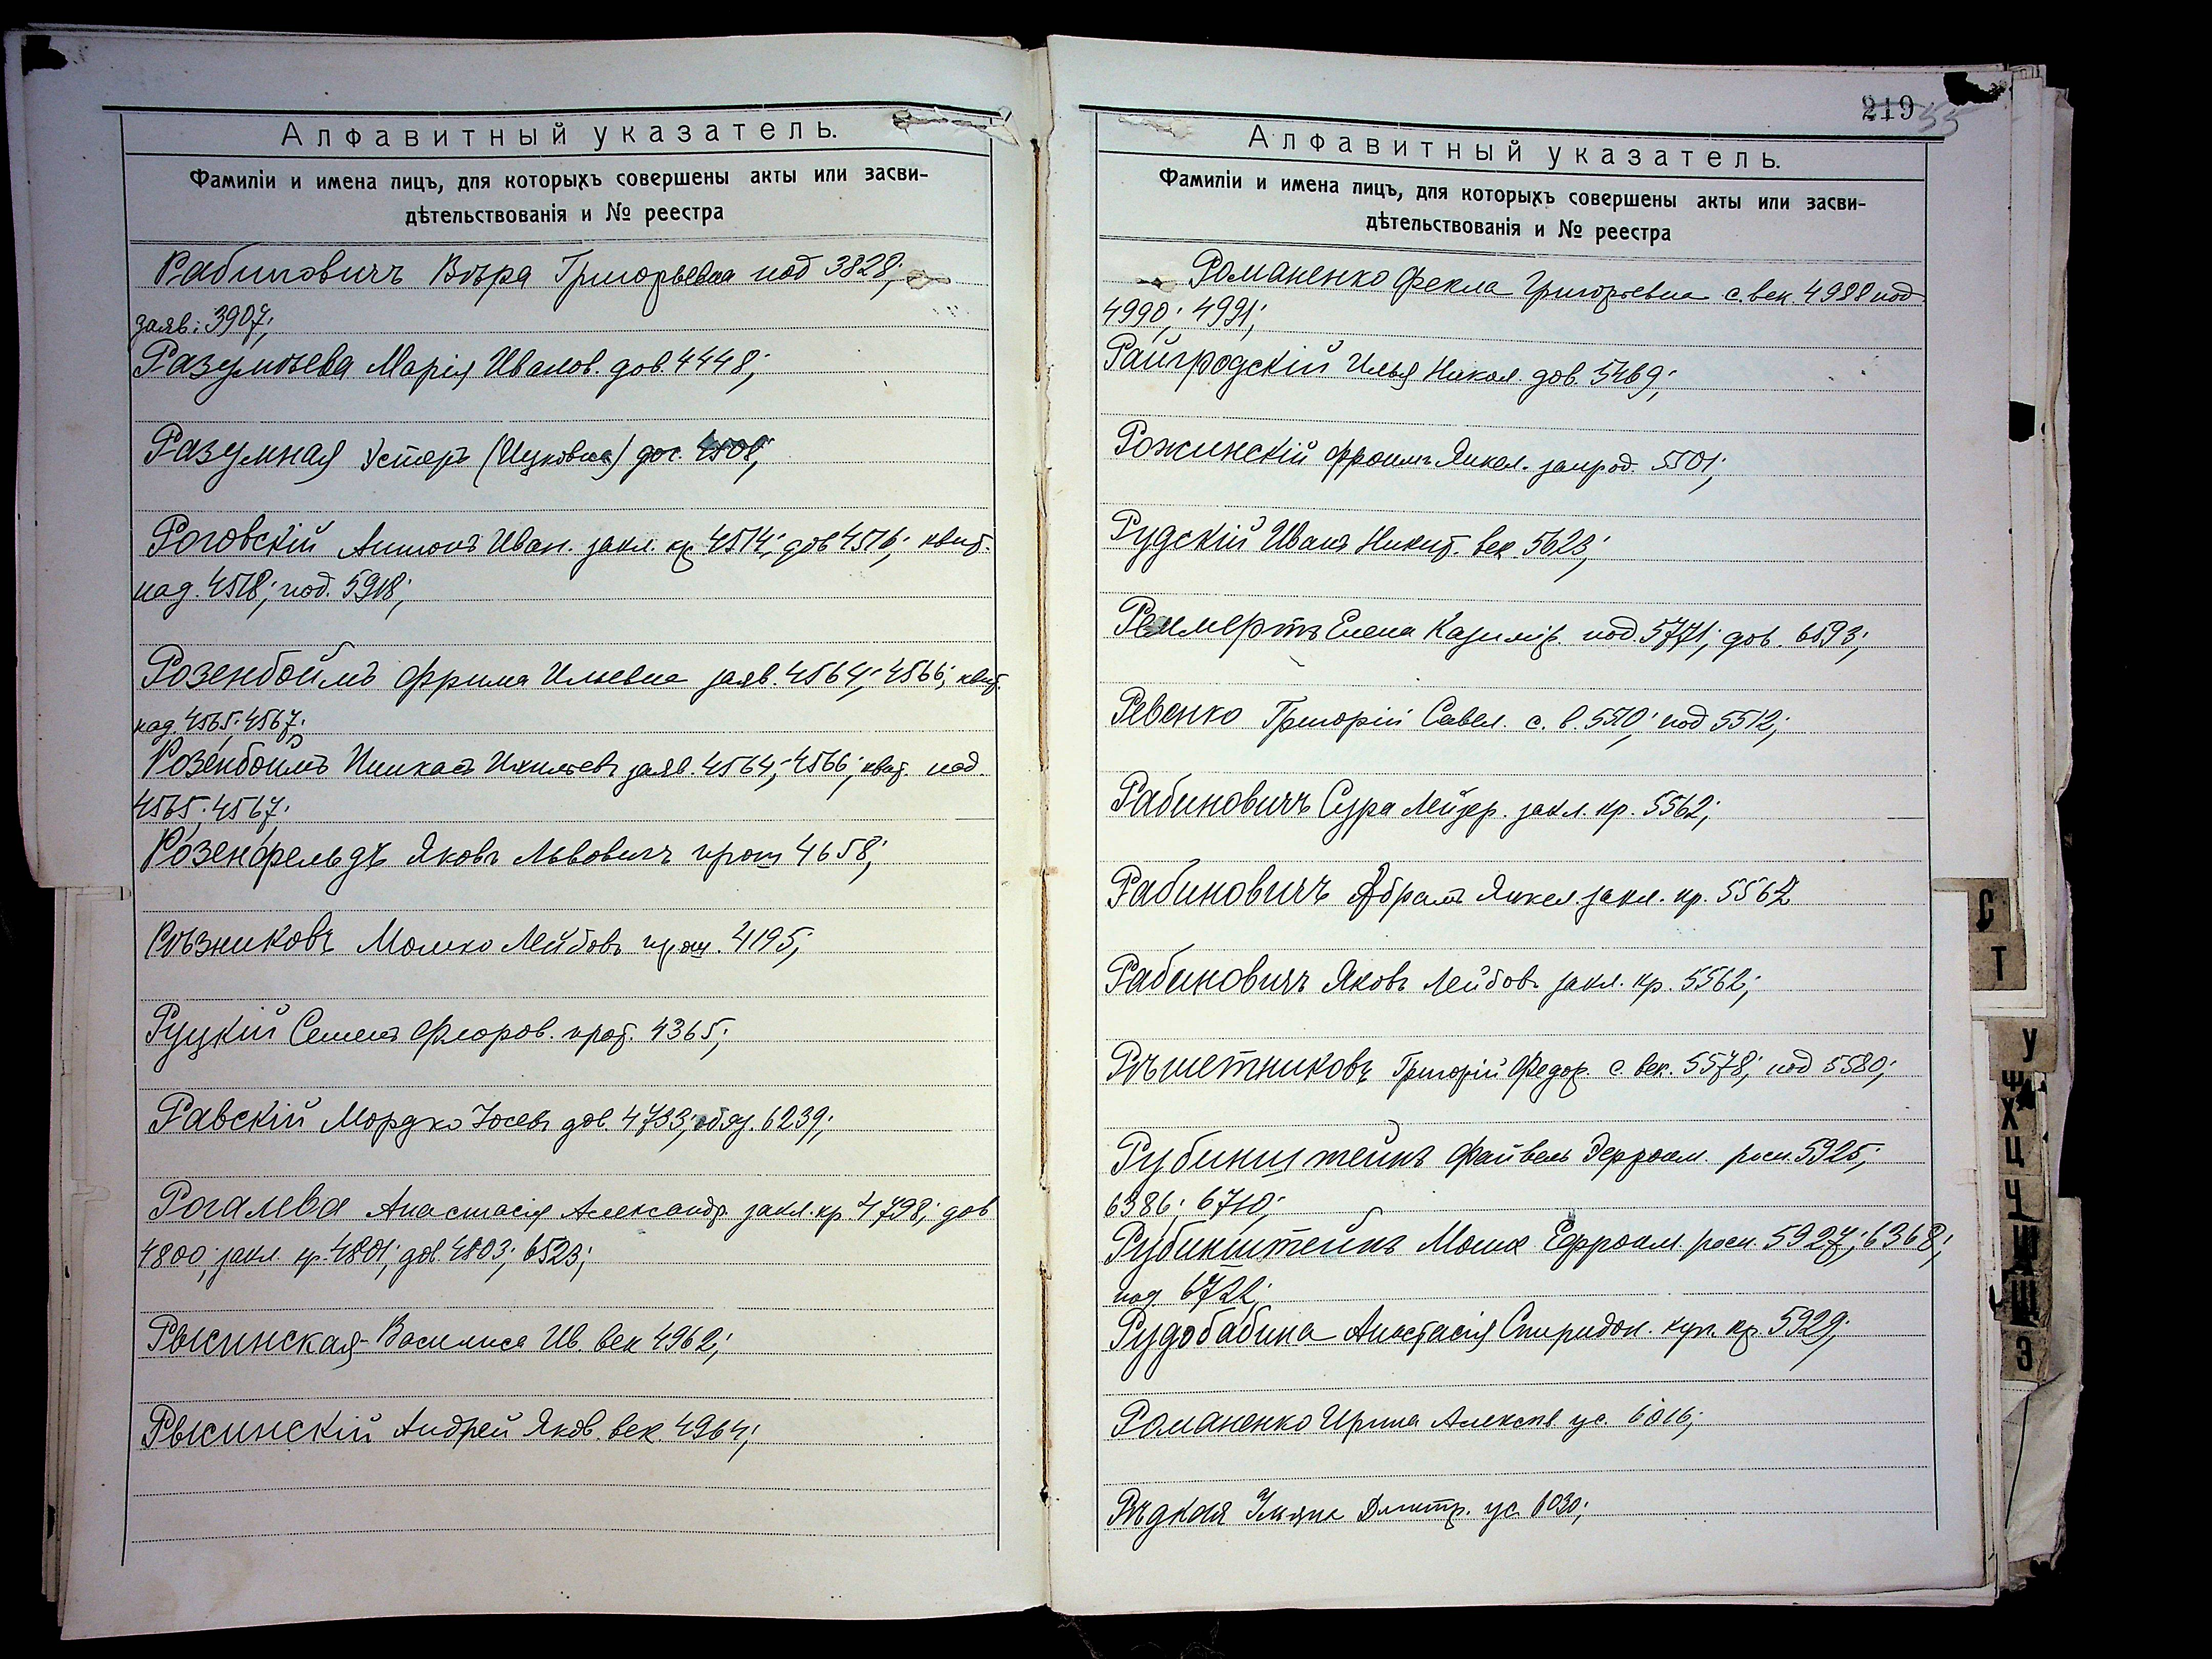 Алфавитный указатель.
Фамиліи и имена лицъ, для которыхъ совершены акты или засви-
дѣтельствованія и № реестра
Рабиновичъ Вѣра Григорьевна под 3828;
заяв. 3907;
Разумѣева Марія Иванов. дов. 4448;
Разумная Эстеръ (Ицковна) 4508;
Роговскій Антонъ Иван. закл. кр 4514; дов 4516; квит.
над. 4518; под. 5918;
Розенбоймъ Фрима Ильевна заяв. 4564; 4566; квит.
над. 4565; 4567;
Розенбоймъ Пинхасъ заяв. 4564; 4566; квит. над.
4565; 4567;
Розенфельдъ Яковъ Львовичъ прот 4658;
Рѣзниковъ Мошко Лейбовъ прот. 4195;
Руцкій Семенъ Флоров. прот. 4365;
Равскій Мордко Іосевъ дов. 4733; обяз. 6239;
Рогалева Анастасія Александр. закл. кр. 4798; дов
4800; закл. кр. 4801; дов. 4803; 6523;
Рысинская Василиса Ив. век 4962;
Рысинскій Андрей Яков. век. 4964;
219
55
Алфавитный указатель.
Фамиліи и имена лицъ, для которыхъ совершены акты или засви-
дѣтельствованія и № реестра
Романенко Фекла Григорьевна с. век. 4988 под
4990; 4991;
Райгродскій Илья Никол. дов. 5469;
Рожинскій Фроимъ Янкел. запрод. 5501;
Рудскій Иванъ Никит. век. 5623;
Реммертъ Елена Казимір. под. 5771; дов. 6593;
Ревенко Григорій Савел. с. в. 5510; под 5512;
Рабиновичъ Сура Лейзер. закл. кр. 5562;
Рабиновичъ Абрамъ Янкел. закл. кр. 5562
Рабиновичъ Яковъ Лейбовъ закл. кр. 5562;
Рѣшетниковъ Григорій Федор. с. век. 5578; под 5580;
Рубинштейнъ Файвель росп. 5925;
6386; 6710;
Рубинштейнъ Мошк Ефроим. росп. 5927; 6368;
под 6722;
Рудобабина Анастасія Спиридон. куп. кр. 5929;
Романенко Ирина Алексѣв ус. 6016;
Рѣдкая Ульяна Дмитр. ус. 6030;
С
Т
У
Ф
Х
Ц
Ч
Ш
Щ
Э